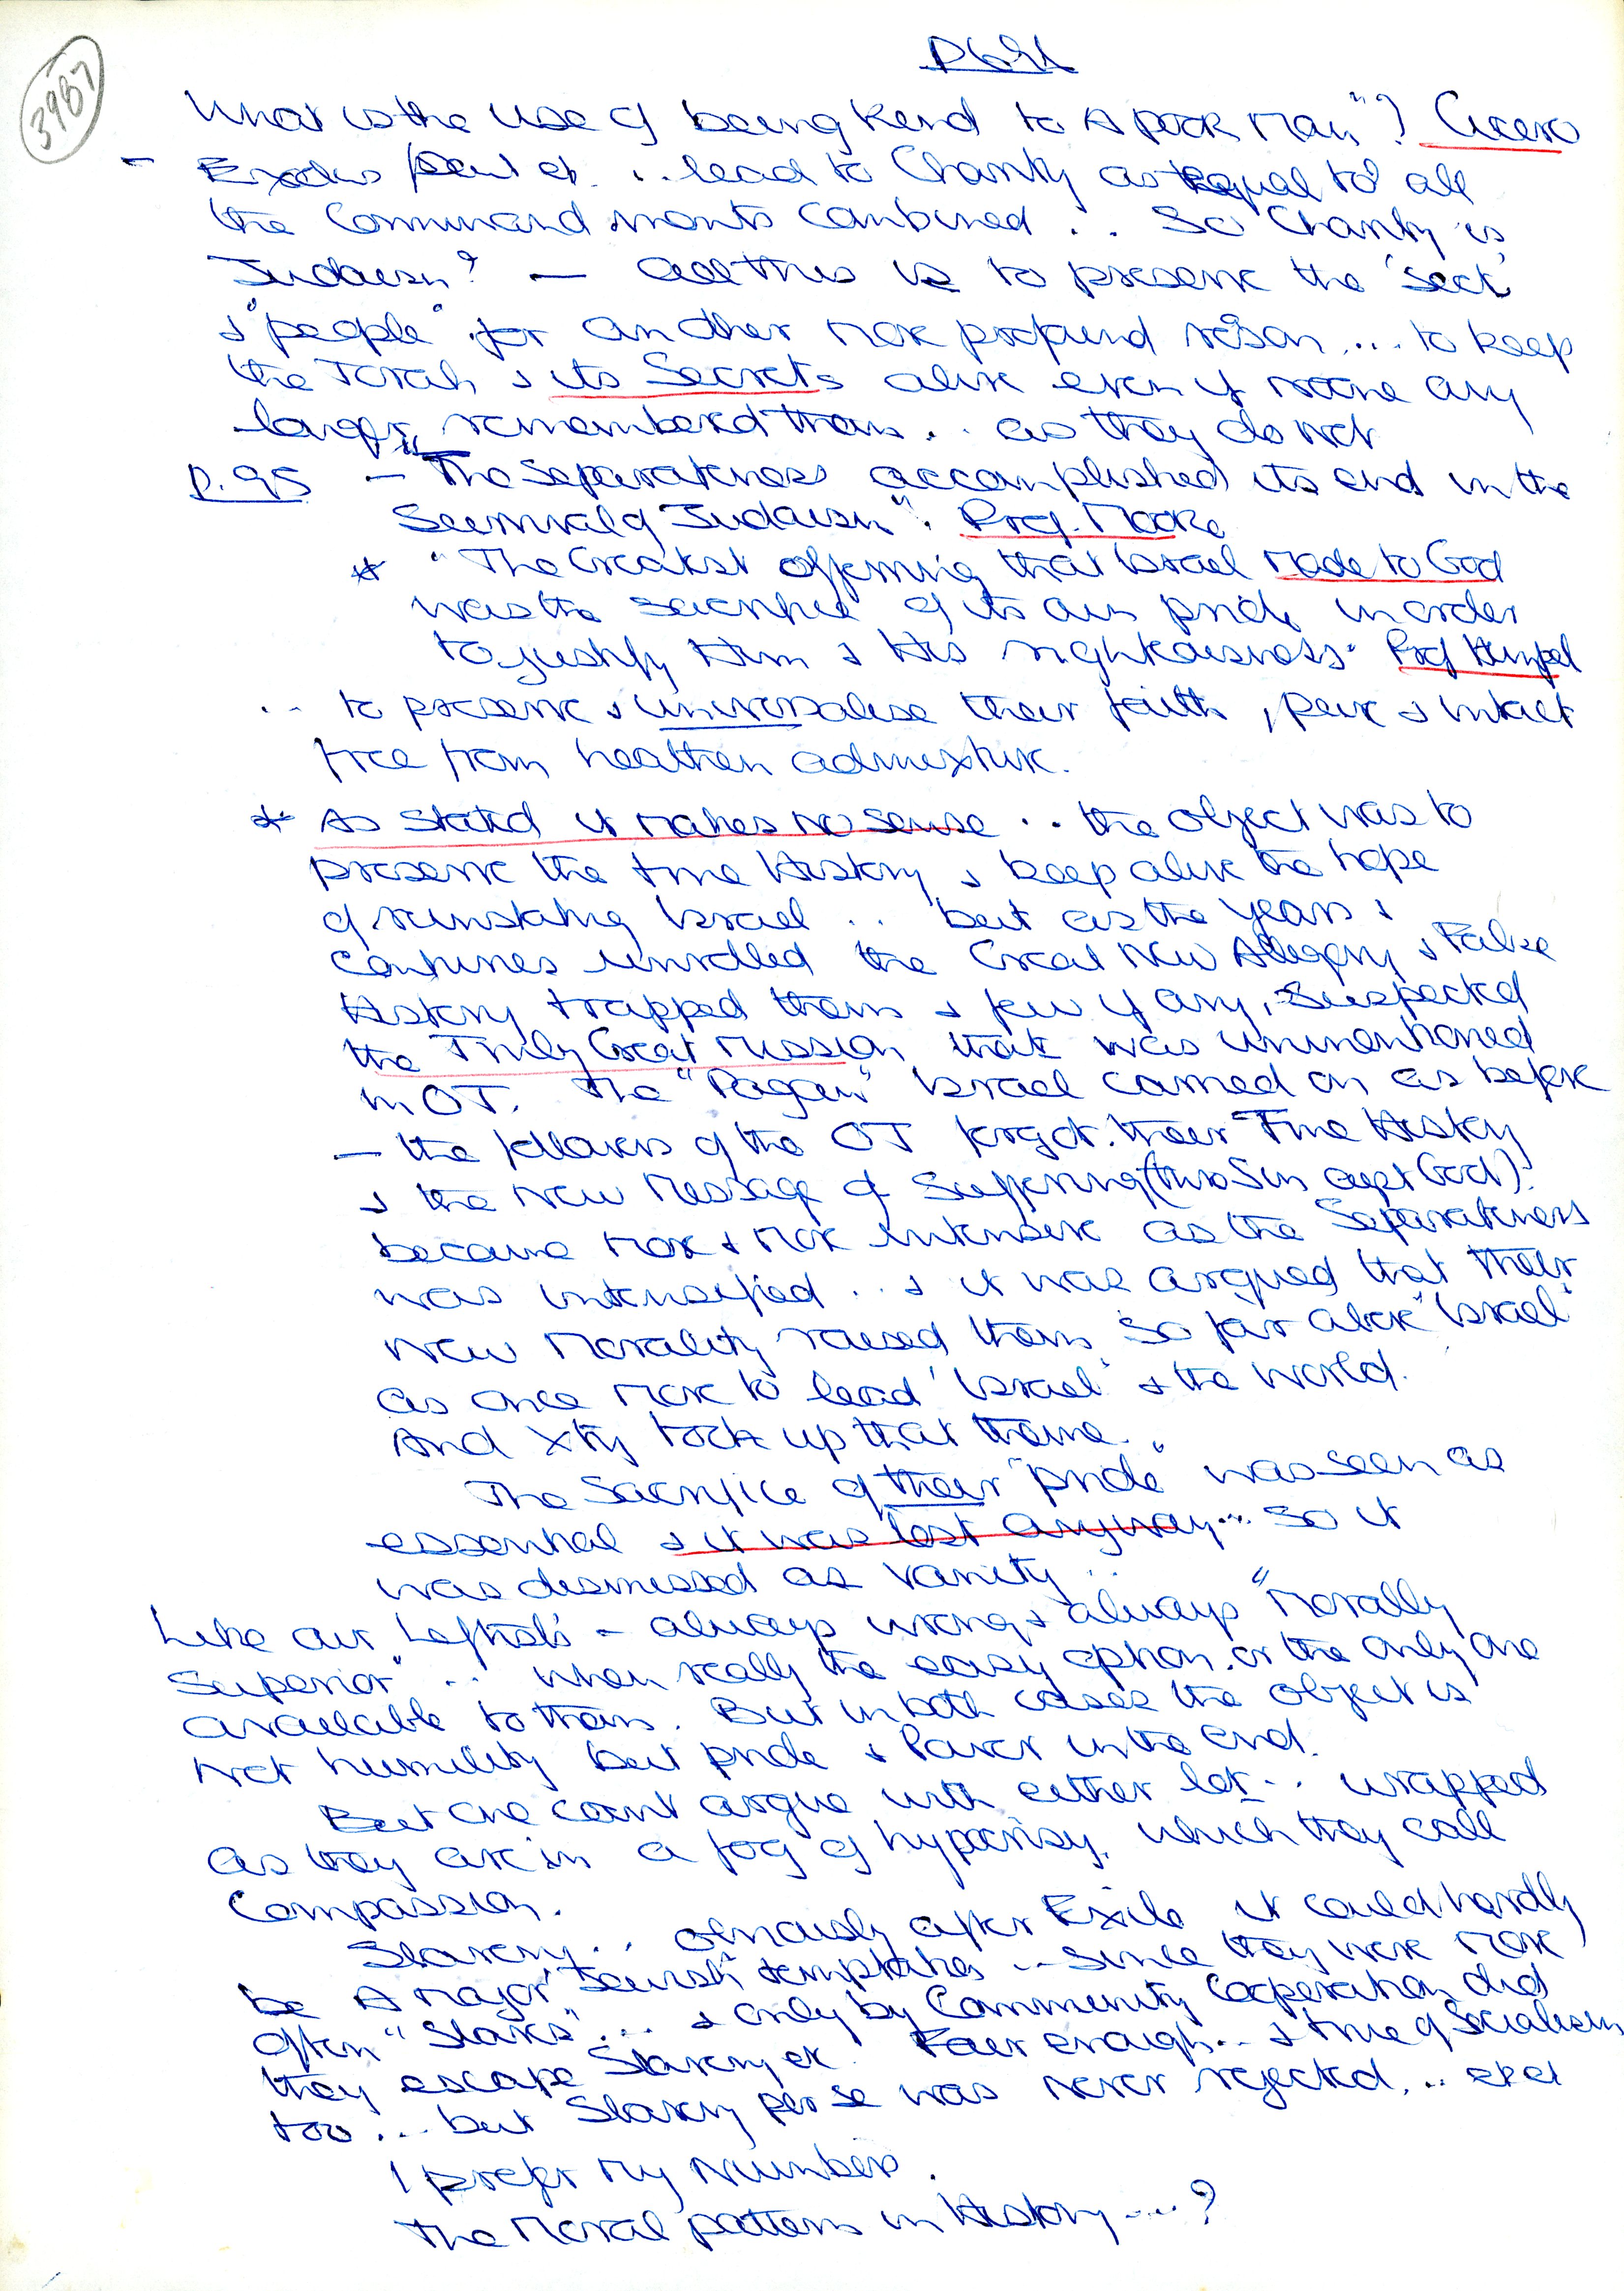 3987
What is the use of being kind to A poor Man"? Cicero
- Exodus etc. .. lead to Charity as "equal to" all
the Commandments combined .. So Charity is
Judaism? — all this is to preserve the 'Sect'
& "people" for another more profound reason .... to keep
the Torah & its Secrets alive even if noone any
longer remembered them .. as they do not
P. 95 — "The Separateness accomplished its end in the
Survival of Judaism". Prof. Moore
* "The Greatest offering that Israel made to God
was the sacrifice of its own pride in order
to justify Him & His righteousness. Prof Hempel
.. to preserve & universalise their faith, pure & intact
free from heathen admixture.
* As stated it makes no sense .. the object was to
preserve the true History & keep alive the hope
of reinstating Israel .. but as the years &
Centuries unrolled the Great New Allegory & False
History trapped them & few if any, Suspected
the Truly Great Mission that was unmentioned
in OT. The "Pagan" Israel carried on as before
— the followers of the OT forgot their True History
& the new Message of Suffering (thro Sin agst God)
became more & more intensive as the Separateness
was intensified .. & it was argued that their
new Morality raised them so far above "Israel"
as once more to lead 'Israel' & the world.
And Xty took up that theme.
The Sacrifice of their "pride" was seen as
essential & it was lost anyway ... so it
was dismissed as Vanity ..
Like our Leftists - always wrong & always "Morally
Superior" .. when really the easy option or the only one
available to them. But in both cases the object is
not humility but pride & Power in the end.
But one can't argue with either lot .. wrapped
as they are in a fog of hypocrisy, which they call
Compassion.
Slavery .. obviously after Exile it could hardly
be A major "Jewish" temptation .. since they were more
often "Slaves" ... & only by Community Cooperation did
they escape Slavery etc. Fair enough .. & true of Socialism
too ... but Slavery per se was never rejected ... etc
I prefer my Numbers.
The Moral pattern in History ....?